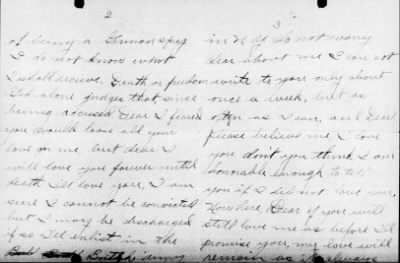 2
of being a German spy
I do not know what
I shall receive. Death or freedom
God alone judges that since
being accused Dear I feared
you would loose all your
love on me, but dear I
will love you forever until
death I'll love you, I am
sure I cannot be convicted
but I may be discharged
if so I'll enlist in the
British Army
3
in N.Y. do not worry
dear about me I can not
write to you only about
once a week, but as
often as I can, and Dear
please believe me I love
you don't you think I am
honorable enough to tell
you if I did not love you.
Now here, Dear if you will
still love me as before I'll
promise you, my love will
remain as it always